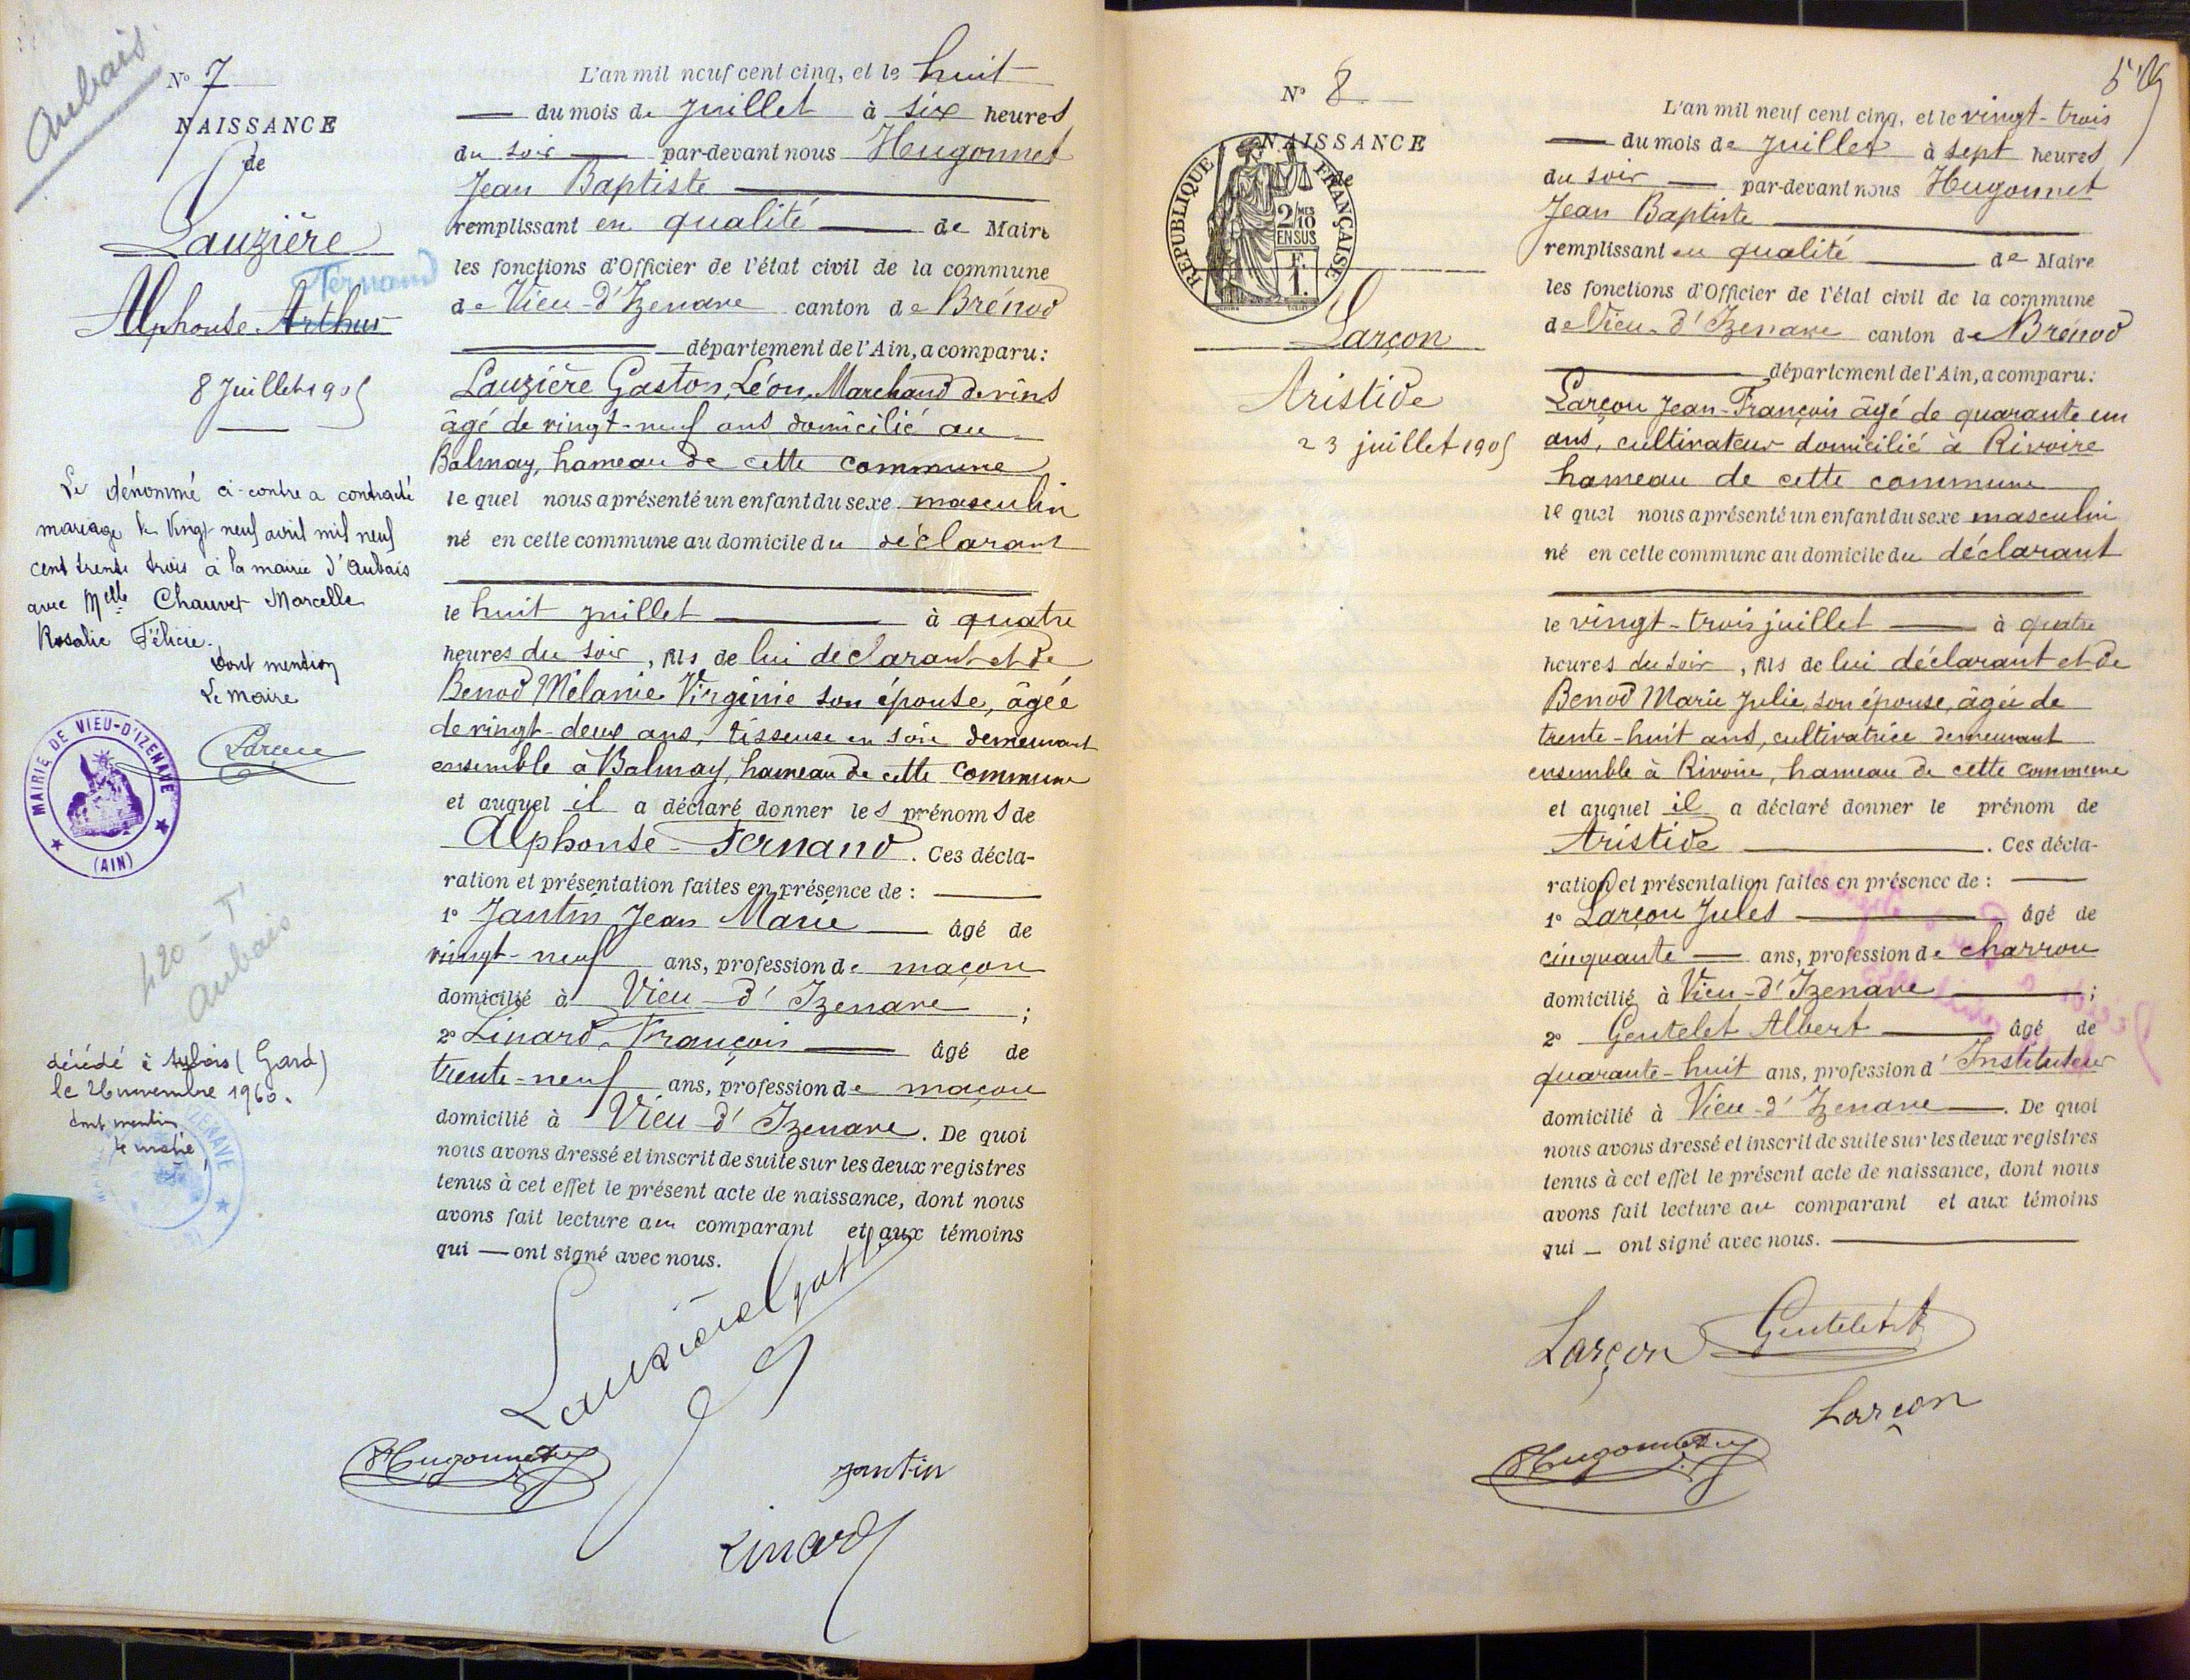 Aubais
N° 7
NAISSANCE
de
Lauzière
Fernand
Alphonse Arthur
8 Juillet 1905
Le dénommé ci-contre a contracté
mariage le Vingt neuf avril mil neuf
cent trente trois à la mairie d'Aubais
avec Melle Chauvet Marcelle
Rosalie Félicie.
Dont mention
Le Maire
MAIRIE DE VIEU-D'IZENAVE
(AIN)
420 - T
Aubais
décédé à Aubais (Gard)
le 26 novembre 1960.
dont mention
le maire
L'an mil neuf cent cinq, et le huit
du mois de Juillet à six heures
du soir par-devant nous Hugonnet
Jean Baptiste
remplissant en qualité de Maire
les fonctions d'Officier de l'état civil de la commune
de Vieu-d'Izenave canton de Brénod
département de l'Ain, a comparu:
Lauzière Gaston, Léon, Marchand de vins
âgé de vingt-neuf ans domicilié au
Balmay, hameau de cette commune
lequel nous a présenté un enfant du sexe masculin
né en cette commune au domicile du déclarant
le huit juillet à quatre
heures du soir, fils de lui déclarant et de
Benod Mélanie Virginie son épouse, âgée
de vingt-deux ans, tisseuse en soie demeurant
ensemble à Balmay, hameau de cette commune
et auquel il a déclaré donner les prénoms de
Alphonse-Fernand. Ces décla-
ration et présentation faites en présence de :
1° Jantin Jean Marie âgé de
vingt-neuf ans, profession de maçon
domicilié à Vieu-d'Izenave ;
2° Linard François âgé de
trente-neuf ans, profession de maçon
domicilié à Vieu-d'Izenave. De quoi
nous avons dressé et inscrit de suite sur les deux registres
tenus à cet effet le présent acte de naissance, dont nous
avons fait lecture au comparant et aux témoins
qui — ont signé avec nous.
Lauzière
Hugonnet
Jantin
Linard
N° 8
NAISSANCE
de
REPUBLIQUE FRANÇAISE
2/10 MES
EN SUS
F.
1.
Larçon
Aristide
23 juillet 1905
L'an mil neuf cent cinq, et le vingt-trois
du mois de Juillet à sept heures
du soir par-devant nous Hugonnet
Jean Baptiste
remplissant en qualité de Maire
les fonctions d'Officier de l'état civil de la commune
de Vieu-d'Izenave canton de Brénod
département de l'Ain, a comparu:
Larçon Jean-François âgé de quarante un
ans, cultivateur domicilié à Rivoire
hameau de cette commune
lequel nous a présenté un enfant du sexe masculin
né en cette commune au domicile du déclarant
le vingt-trois juillet à quatre
heures du soir, fils de lui déclarant et de
Benod Marie Julie, son épouse, âgée de
trente-huit ans, cultivatrice demeurant
ensemble à Rivoire, hameau de cette commune
et auquel il a déclaré donner le prénom de
Aristide. Ces décla-
ration et présentation faites en présence de :
1° Larçon Jules âgé de
cinquante ans, profession de charron
domicilié à Vieu-d'Izenave ;
2° Gentelet Albert âgé de
quarante-huit ans, profession d'Instituteur
domicilié à Vieu-d'Izenave. De quoi
nous avons dressé et inscrit de suite sur les deux registres
tenus à cet effet le présent acte de naissance, dont nous
avons fait lecture au comparant et aux témoins
qui — ont signé avec nous.
Larçon Gentelet A
Larçon
Hugonnet